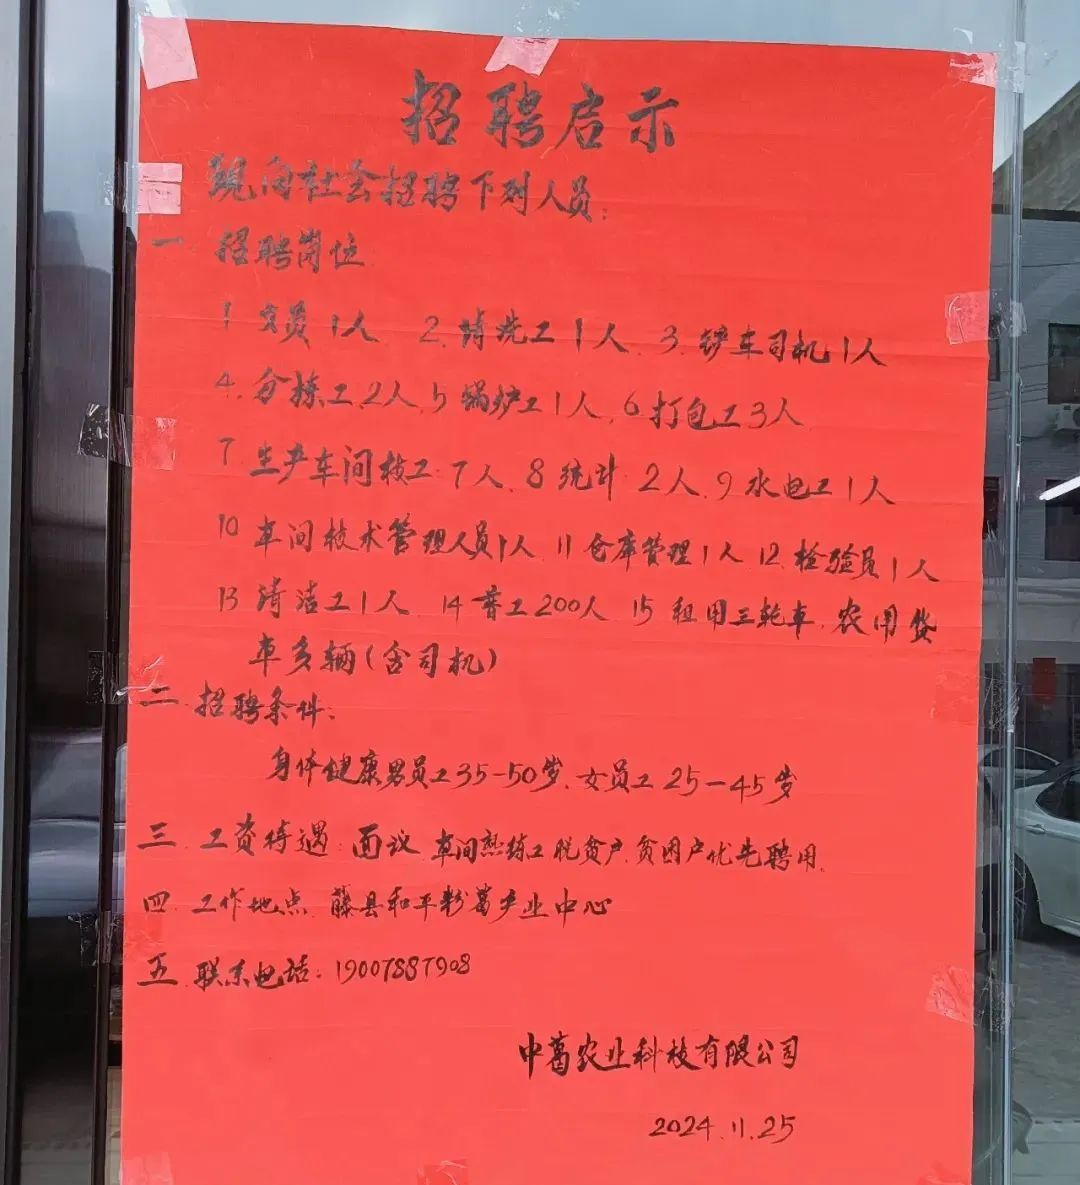 招聘启示
现向社会招聘下列人员:
一 招聘岗位
1 文员1人 2.清洗工1人、3.铲车司机1人
4.分拣工.2人,5锅炉工1人,6打包工3人
7.生产车间技工:7人、8统计:2人、9水电工1人
10车间技术管理人员1人 11仓库管理1人 12.检验员1人
13清洁工1人、14普工200人、15租用三轮车.农用货
车多辆(含司机)
二.招聘条件:
身体健康男员工35-50岁、女员工25-45岁
三.工资待遇:面议 车间熟练工脱贫户.贫困户优先聘用.
四.工作地点.藤县和平粉葛产业中心
五.联系电话:19007887908
中葛农业科技有限公司
2024.11.25